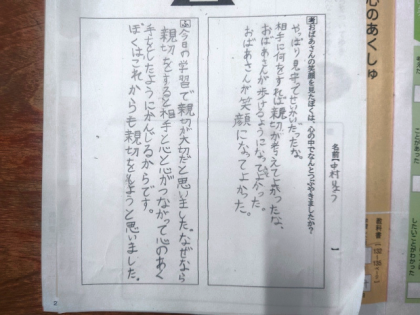 心のあくしゅ
名前 中村
考 おばあさんの笑顔を見たぼくは、心の中でなんとつぶやきましたか？
やっぱり見守ってせいかいだったな。
相手に何をすれば親切か考えてよかったな。
おばあさんが歩けるようになってよかった。
おばあさんが笑顔になってよかった。
ふ 今日の学習で親切が大切だと思いました。なぜなら
親切をすると相手と心と心がつながって心のあく
手をしたようにかんじるからです。
ぼくはこれからも親切をしようと思いました。
教科書
2